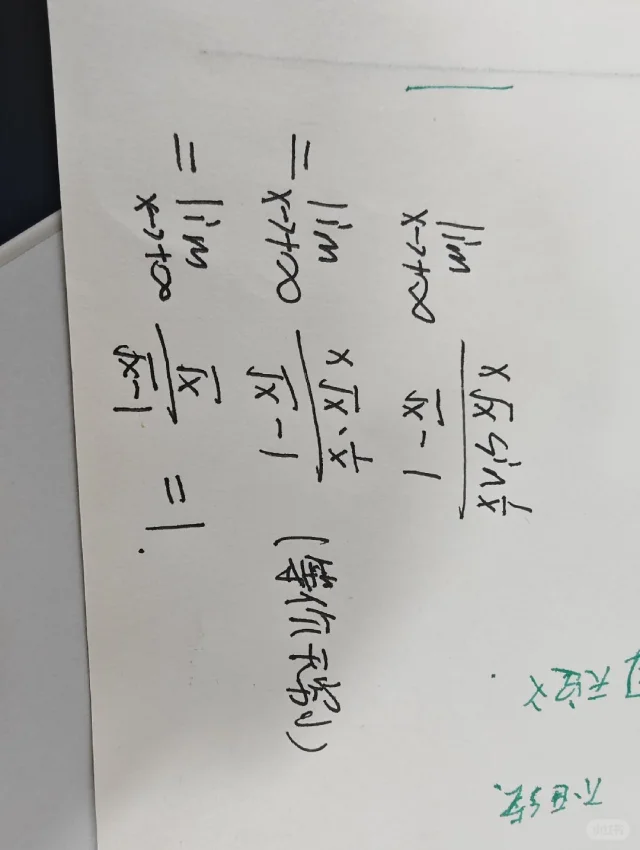 lim x→+∞ x√x sin 1/x / √x - 1
= lim x→+∞ x√x · 1/x / √x - 1 (等价无穷小)
= lim x→+∞ √x / √x - 1 = 1.
无定义